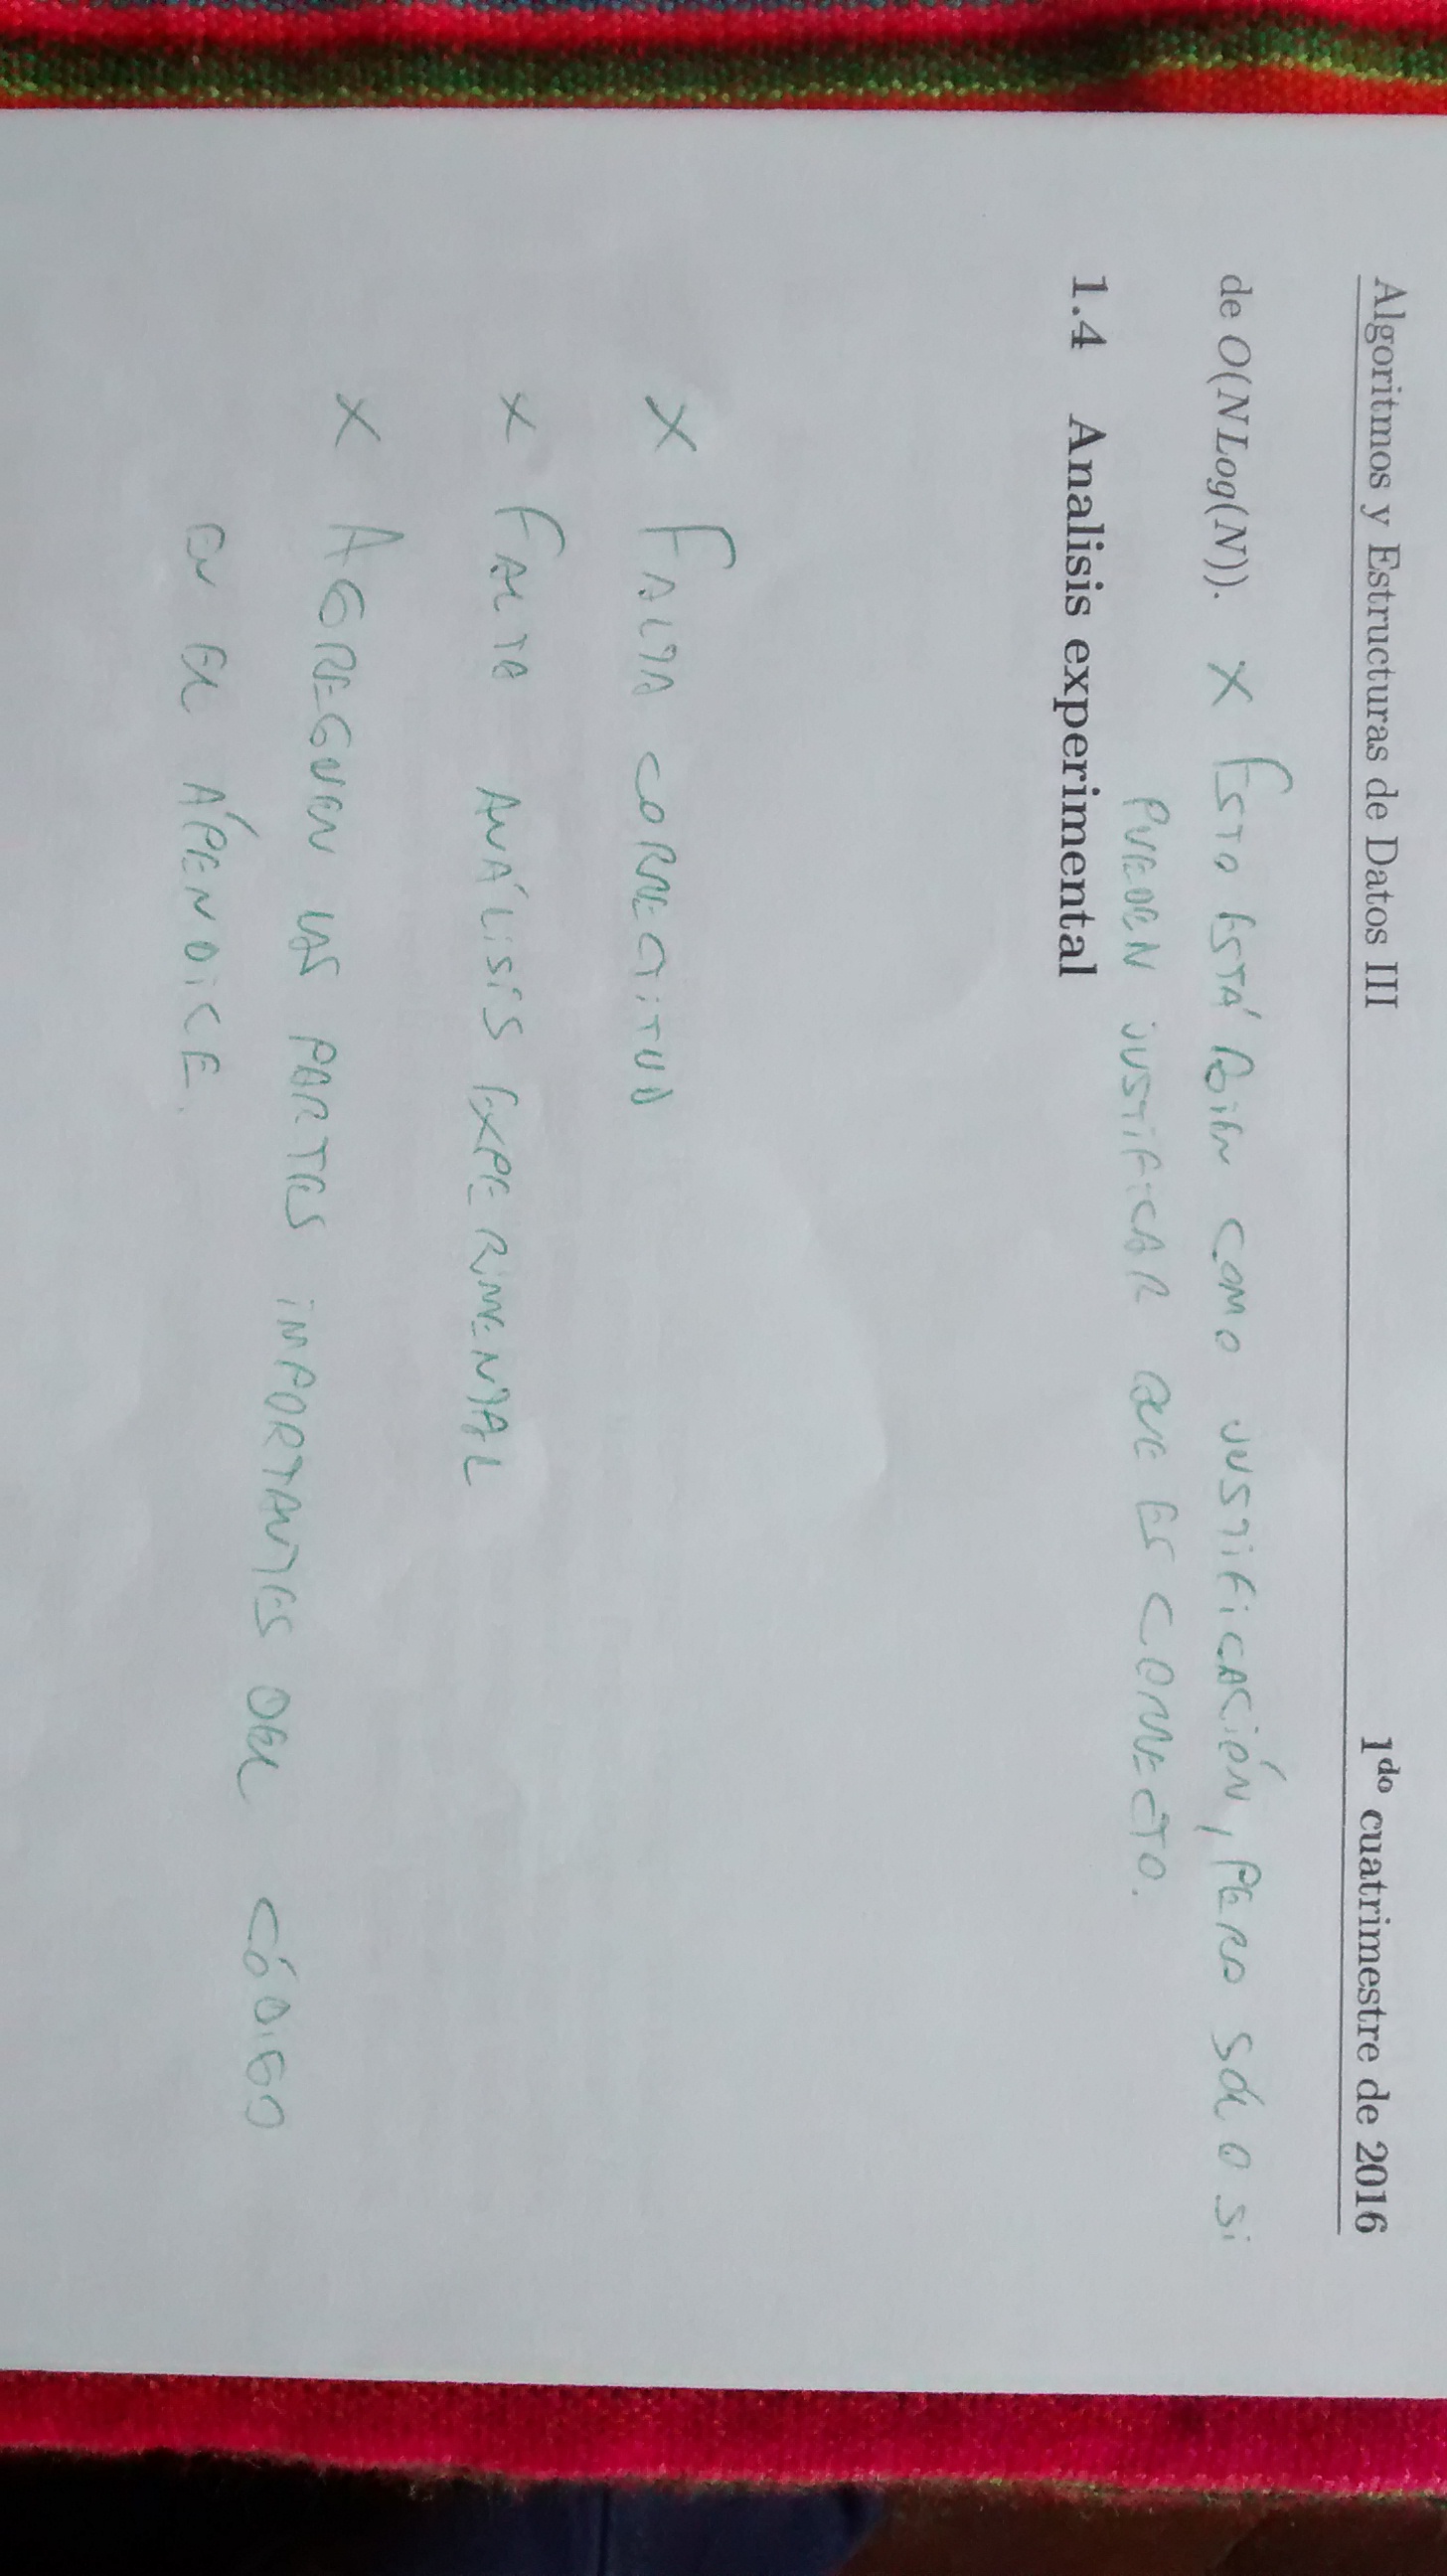 Algoritmos y Estructuras de Datos III 1do cuatrimestre de 2016
de O(NLog(N)). X ESTO ESTÁ BIEN COMO JUSTIFICACIÓN, PERO SOLO SI
PUEDEN JUSTIFICAR QUE ES CORRECTO.
1.4 Analisis experimental
X FALTA CORRECTITUD
X FALTA ANÁLISIS EXPERIMENTAL
X AGREGUEN LAS PARTES IMPORTANTES DEL CÓDIGO
EN EL ÁPENDICE.